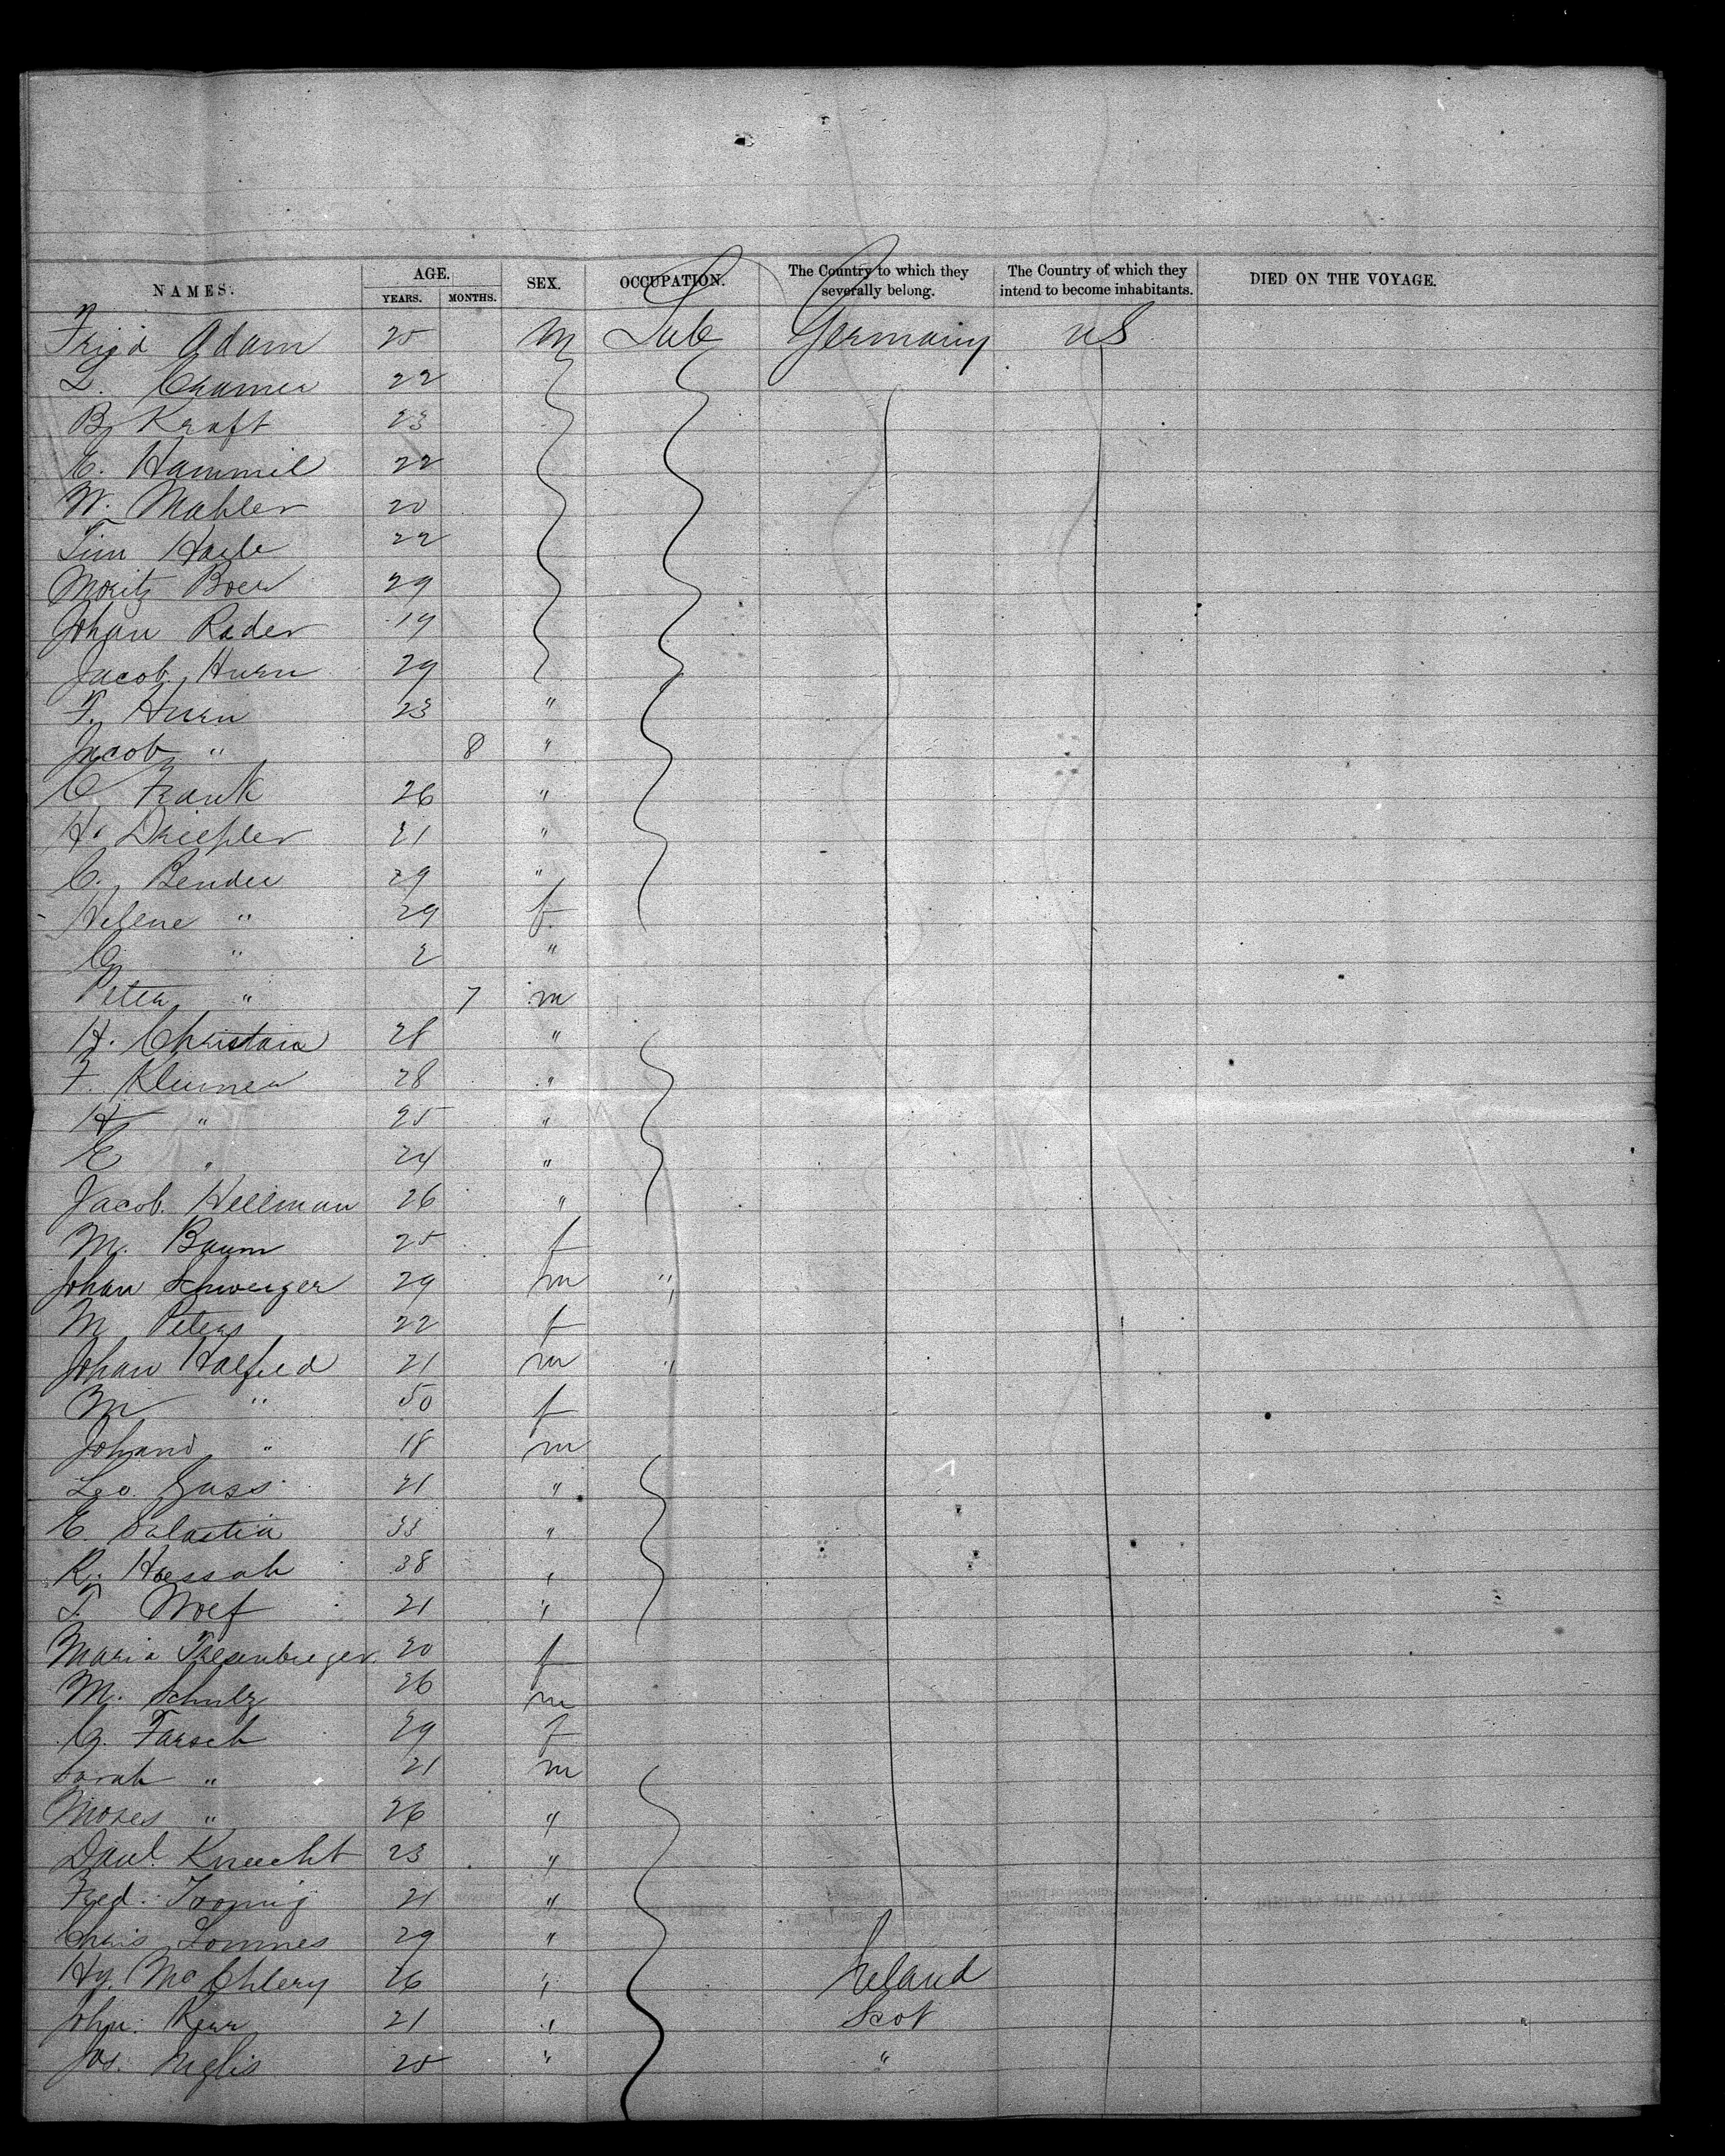 NAMES. AGE. YEARS. MONTHS. SEX. OCCUPATION. The Country to which they severally belong. The Country of which they intend to become inhabitants. DIED ON THE VOYAGE.
Adam 25 m Lab Germany US
L. Cramer 22
B. Kraft 23
E. Hammil 22
W. Mahler 20
Tim 22
Moritz Boer 29
Johan Rader 19
Jacob Hurn 29
F. Hurn 23 "
Jacob " 8 "
C Frank 26 "
H. 21 "
C. Bender 29 "
Helene " 29 f
C " 2 "
Peter " 7 m
H. Christain 28 "
F. 28 "
H " 25 "
E " 24 "
Jacob Hellman 26 "
M. Baum 25 f
Johan Schweizer 29 m "
M Peters 22 f
Johan 21 m "
M " 50 f
" 18 m
Leo 21 "
E. 33 "
R. 38 "
T. Wolf 21 "
Maria 20 f
M. Schulz 26 m
C. Farsch 29 f
Sarah " 21 m
Moses " 26 "
Danl. Knecht 23 "
Fred. 21 "
Chris 29 "
Hy. Mc 26 " Ireland
John Kerr 21 " Scot
Jos. Inglis 25 " "